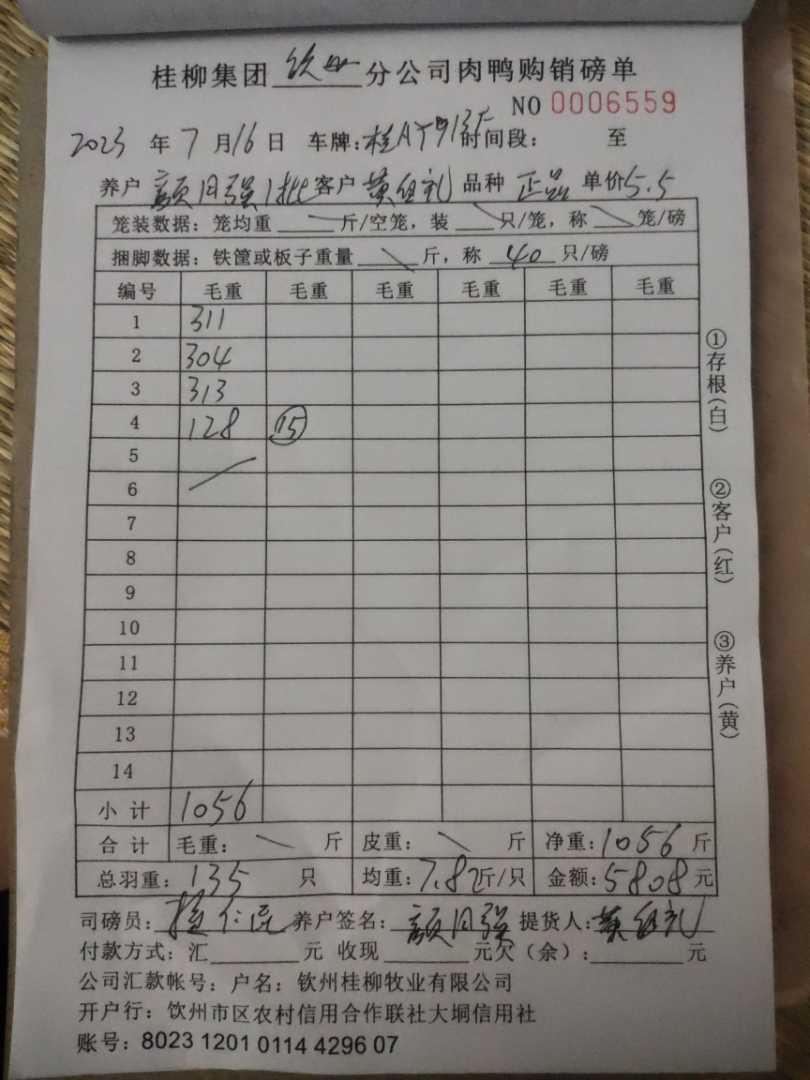 桂柳集团钦州分公司肉鸭购销磅单
NO 0006559
2023 年 7 月 16 日 车牌: 时间段: 至
养户 颜月强 1批 客户 黄伍礼 品种 正品 单价 5.5
笼装数据: 笼均重 斤/空笼, 装 只/笼, 称 笼/磅
捆脚数据: 铁筐或板子重量 斤, 称 40 只/磅
编号 毛重 毛重 毛重 毛重 毛重 毛重
1 311
2 304
3 313
4 128 15
5
6
7
8
9
10
11
12
13
14
小计 1056
合计 毛重: 斤 皮重: 斤 净重: 1056 斤
总羽重: 135 只 均重: 7.82 斤/只 金额: 5808 元
司磅员: 养户签名: 颜月强 提货人: 黄伍礼
付款方式: 汇 元 收现 元欠(余): 元
公司汇款帐号: 户名: 钦州桂柳牧业有限公司
开户行: 钦州市区农村信用合作联社大垌信用社
账号: 8023 1201 0114 4296 07
①存根(白)
②客户(红)
③养户(黄)